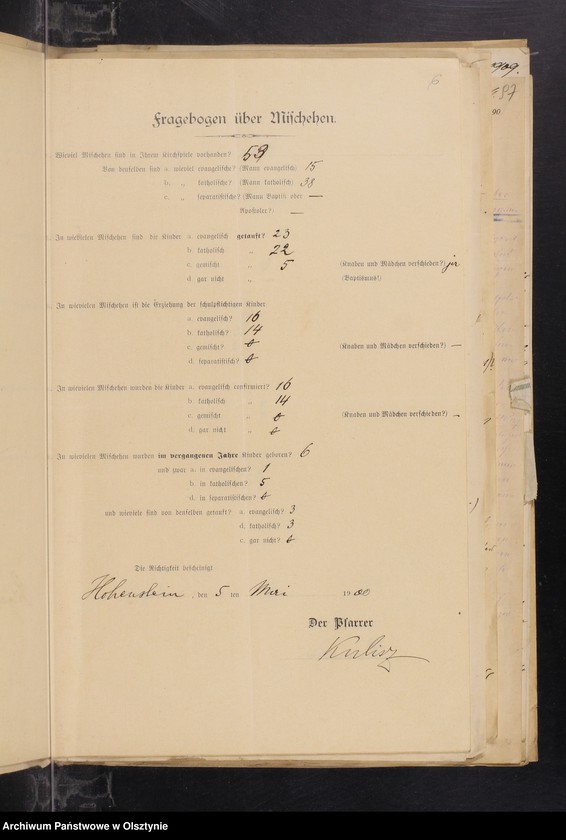 6
Fragebogen über Mischehen.
Wieviel Mischehen sind in Ihrem Kirchspiele vorhanden? 53
Von denselben sind a. wieviel evangelische? (Mann evangelisch) 15
b. „ katholische? (Mann katholisch) 38
c. „ separatistische? (Mann Baptist oder —
Apostoler?) —
In wievielen Mischehen sind die Kinder a. evangelisch getauft? 23
b. katholisch „ 22
c. gemischt „ 5 (Knaben und Mädchen verschieden?) ja
d. gar nicht „ (Baptismus!)
In wievielen Mischehen ist die Erziehung der schulpflichtigen Kinder
a. evangelisch? 16
b. katholisch? 14
c. gemischt? 0 (Knaben und Mädchen verschieden?) —
d. separatistisch? 0
In wievielen Mischehen wurden die Kinder a. evangelisch confirmiert? 16
b. katholisch „ 14
c. gemischt „ 0 (Knaben und Mädchen verschieden?) —
d. gar nicht „ 0
In wievielen Mischehen wurden im vergangenen Jahre Kinder geboren? 6
und zwar a. in evangelischen? 1
b. in katholischen? 5
d. in separatistischen? 0
und wieviele sind von denselben getauft? a. evangelisch? 3
d. katholisch? 3
e. gar nicht? 0
Die Richtigkeit bescheinigt
Hohenstein, den 5 ten Mai 1900
Der Pfarrer
909.
97
90.
Archiwum Państwowe w Olsztynie